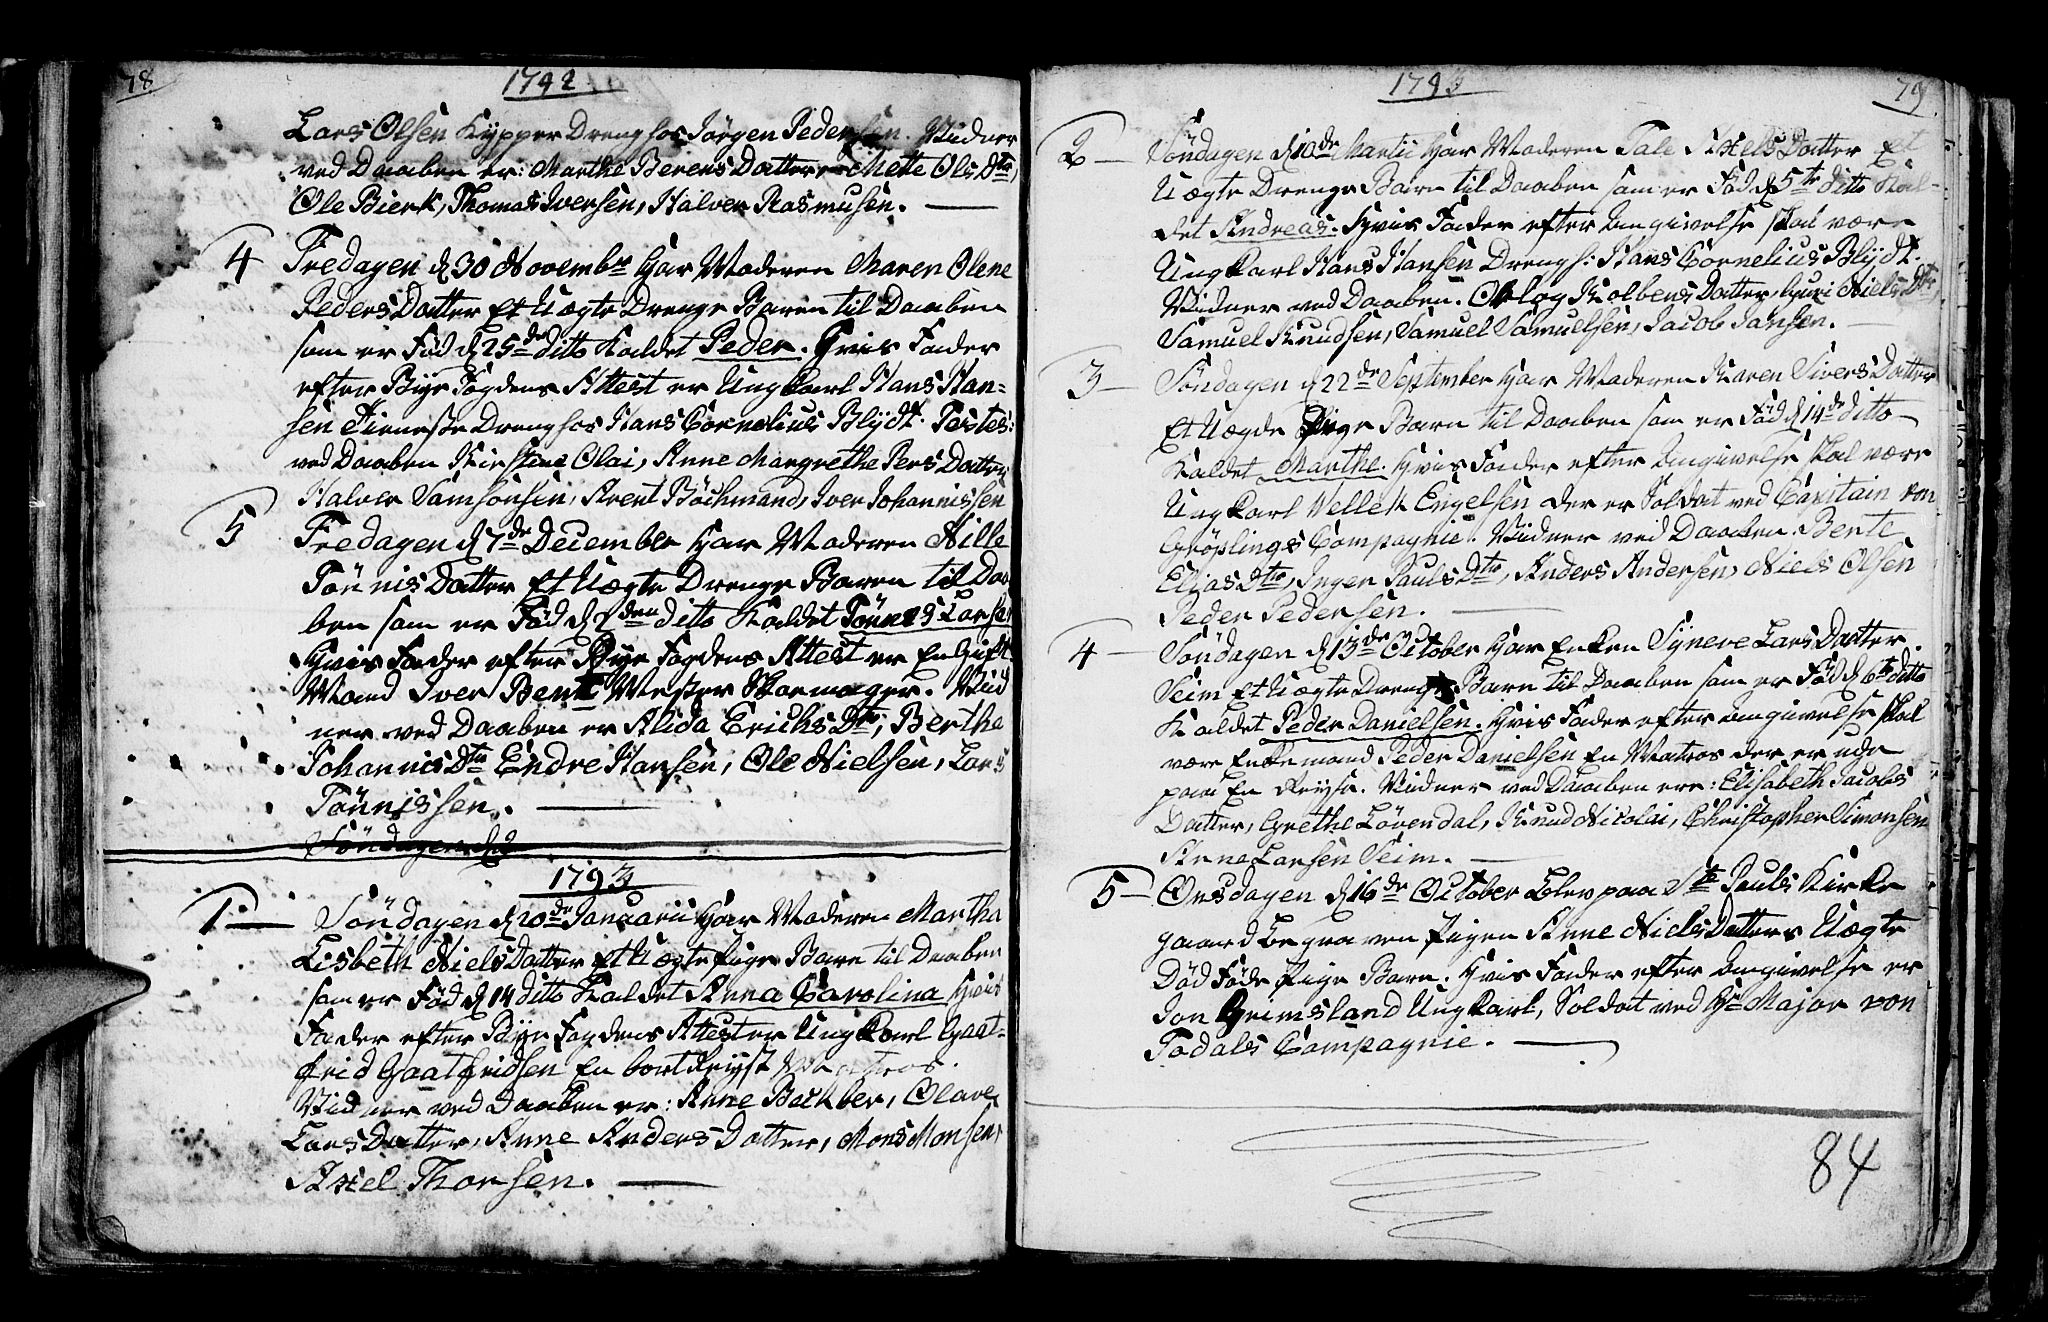 78
1792
Lars Olsen Kÿpper Dreng hos Jörgen Pedersen. Vidner
ved Daaben er: Marthe Berens Datter, Mette Ols Dtr,
Ole Bierk, Thomas Iversen, Halver Rasmusen.
4 Fredagen d 30 Novembre har Moderen Maren Olene
Peders Datter Et Uægte Drenge Baren til Daaben
som er Föd d 25de ditto Kaldet Peder. Hvis Fader
efter Bÿe Fogdens Attest er Ung Karl Hans Han-
sen Tieneste Dreng hos Hans Cornelius Blÿdt. Testes:
ved Daaben Kirstine Olai, Anne Margrethe Pers Datter
Halver Samsonsen, Arent Böchmand, Iver Johannissen
5 Fredagen d 7de December har Moderen Nille
Tönnis Datter Et Uægte Drenge Baren til Daa
ben som er Föd d 2den ditto Kaldet Tönnes Larsen
Hvis Fader efter Bÿe Fogdens Attest er En Gift
Mand Iver Bent Mester Skomager. Vid
ner ved Daaben er Alida Erichs Dtr, Berthe
Johannis Dtr Endre Hansen, Ole Nielsen, Lars
Tönnissen.
Söndagen d
1793
1 Söndagen d 20de Januarii har Moderen Martha
Lisbeth Niels Datter Et Uægte Pige Barn til Daaben
som er Föd d 14 ditto Kaldet Anna Carolina Hvis
Fader efter Bÿe Fogdens Attest er Ung Karl Gaat-
frid Gaatfridsen En bort Reÿst Matros.
Vidner ved Daaben er: Anne Bechber, Olave
Lars Datter, Anne Anders Datter, Mons Monsen,
Axel Thorsen.
1793
79
2 Söndagen d 10de Martii har Moderen Tale Axels Datter Et
Uægte Drenge Barn til Daaben som er Föd d 5te ditto Kal-
det Andreas. Hvis Fader efter Angivelse skal være
Ung Karl Hans Hansen Dreng h: Hans Cornelius Blÿdt.
Vidner ved Daaben. Kolbens Datter, Guri Niels Dtr
Samuel Knudsen, Samuel Samuelsen, Jacob Jansen.
3 Söndagen d 22de September har Moderen Karen Sivers Datter
Et Uægde Pige Barn til Daaben som er Föd d 14de ditto
Kaldet Marthe. Hvis Fader efter Angivelse skal være
Ung Karl Vellek Engelsen der er Soldat ved Capitain von
Gröplings Compagnie. Vidner ved Daaben. Bente
Elias Dtr, Inger Pauls Dtr, Anders Andersen, Niels Olsen
Peder Pedersen.
4 Söndagen d 13de October har Enken Sÿneve Lars Datter
Seim Et Uægte Drenge Barn til Daaben som er Föd d 6te ditto
Kaldet Peder Danielsen. Hvis Fader efter Angivelse skal
være Enkemand Peder Danielsen En Matros der er ude
paa En Reÿse. Vidner ved Daaben ere: Elisabeth Jacobs
Datter, Grethe Lövendal, Knud Nicolai, Christopher Simonsen
Anne Larsen Seim.
5 Onsdagen d 16de October blev paa Ste Pauls Kirke
gaard begraven Pigen Anne Niels Datters Uægte
Död Föde Pige Barn. Hvis Fader efter Angivelse er
Jon Grimsland Ung Karl, Soldat ved Hr Major von
Todals Compagnie.
84